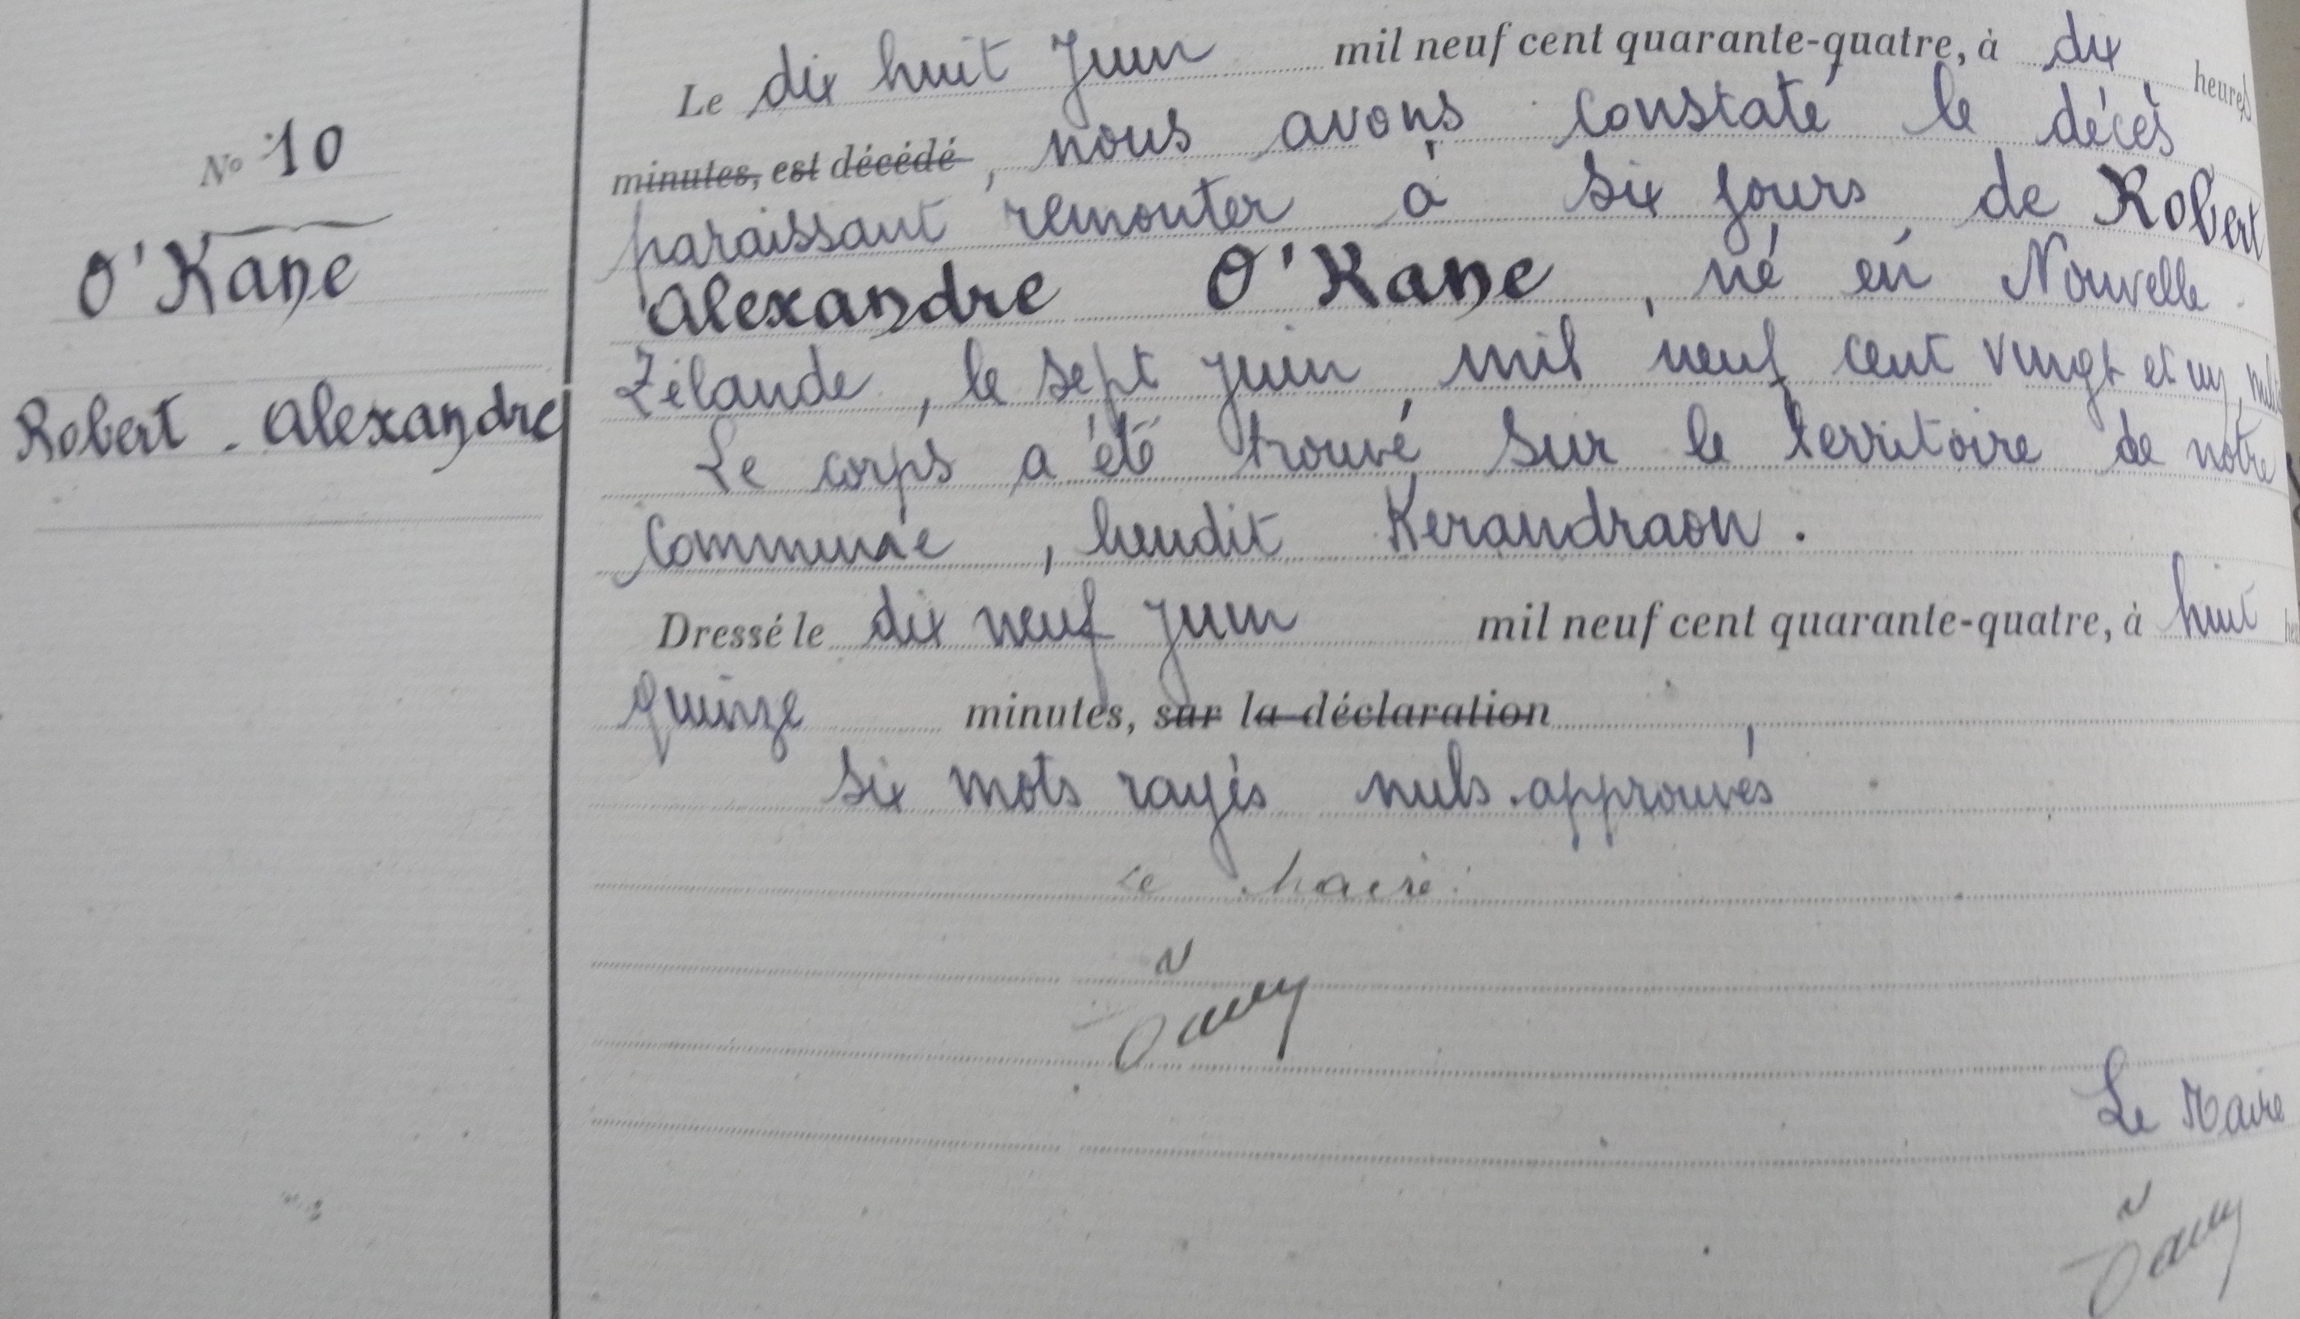 N° 10
O'Kane
Robert - Alexandre
Le dix huit Juin mil neuf cent quarante-quatre, à dix heures
minutes, est décédé, nous avons constaté le décès
paraissant remonter à six jours de Robert
Alexandre O'Kane, né en Nouvelle-
Zélande, le sept juin, mil neuf cent vingt et un,
Le corps a été trouvé sur le territoire de notre
Commune, lieudit Kerandraon.
Dressé le dix neuf juin mil neuf cent quarante-quatre, à huit
quinze minutes, sur la déclaration,
six mots rayés nuls approuvés
Le Maire:
Le Maire